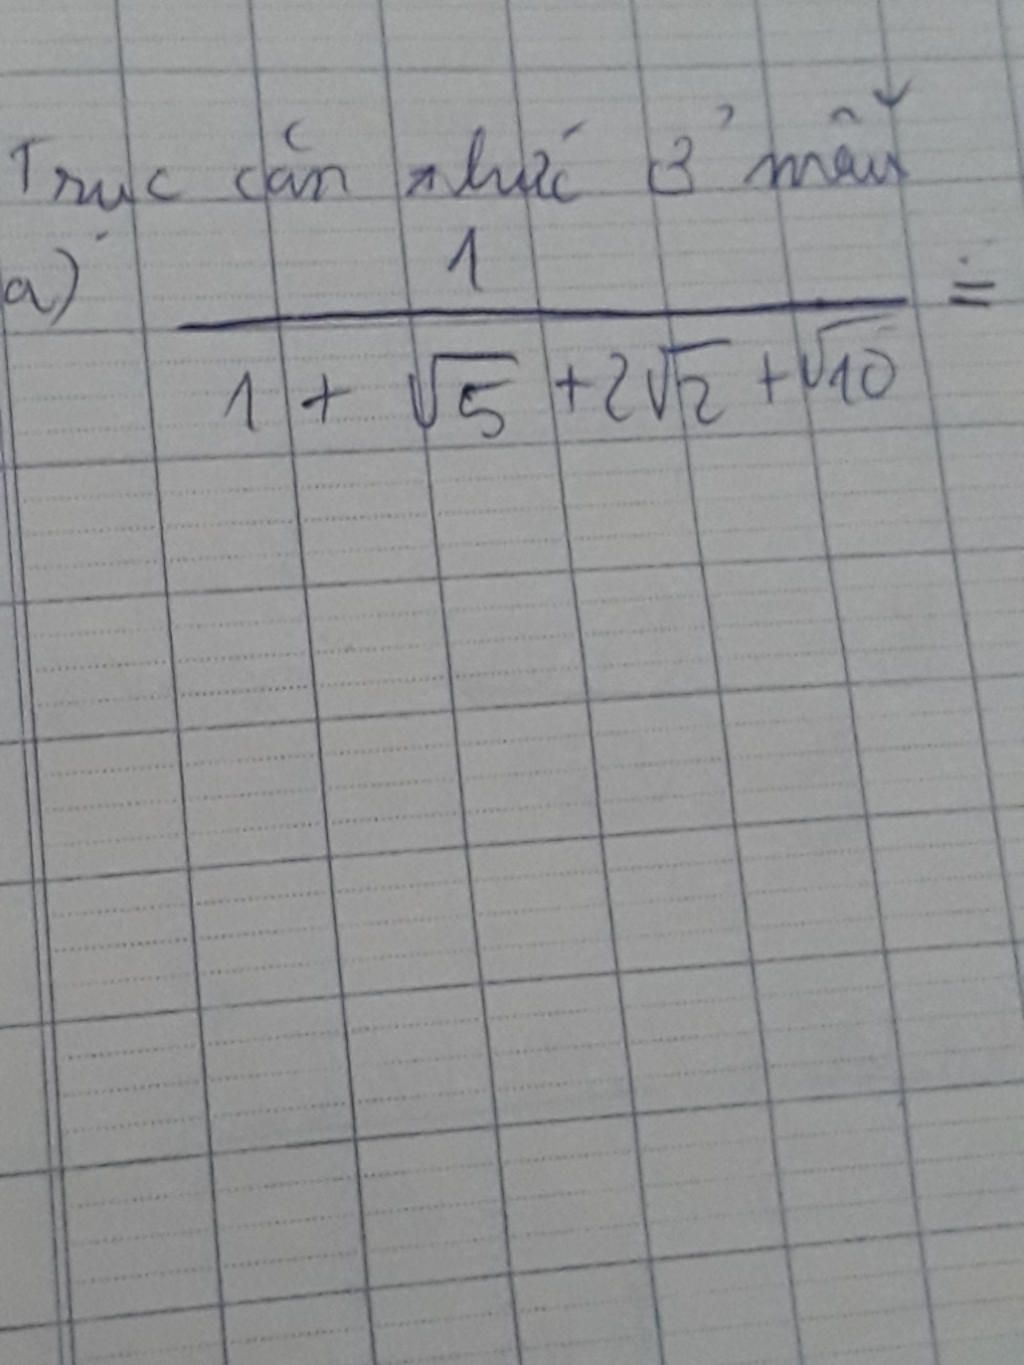 Trục căn thức ở mẫu
a) 1 / (1 + √5 + 2√2 + √10) =